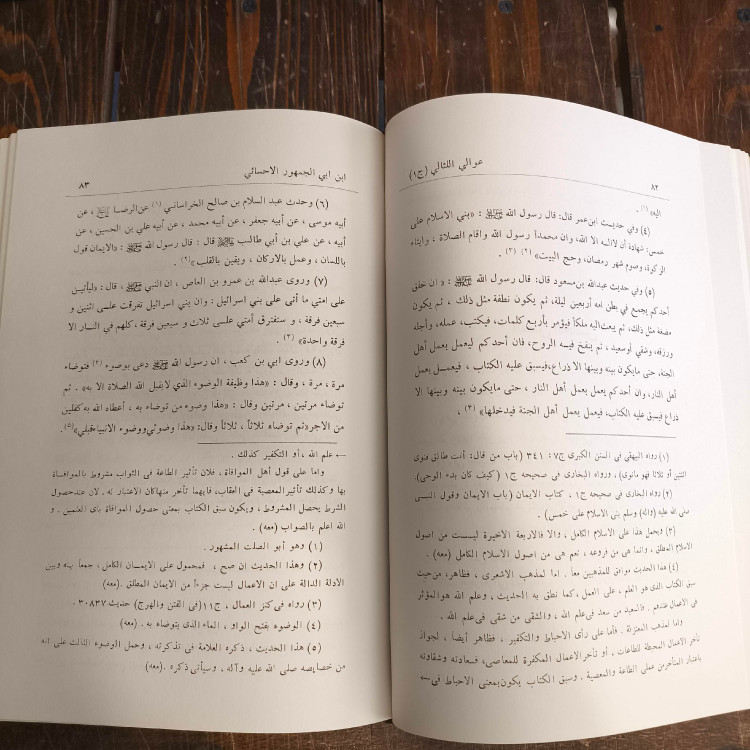 ٨٢
عوالي اللئالي (ج١)
اليه» (١) .
(٤) وفي حديث ابن‌عمر قال: قال رسول الله ﷺ : «بني الاسلام على
خمس: شهادة أن لااله الا الله، وان محمداً رسول الله واقام الصلاة ، وايتاء
الزكوة، وصوم شهر رمضان، وحج البيت» (٢) (٣) .
(٥) وفي حديث عبدالله بن‌مسعود قال: قال رسول الله ﷺ : « ان خلق
أحدكم يجمع في بطن امه أربعين ليلة، ثم يكون نطفة مثل ذلك ، ثم يكون
مضغة مثل ذلك، ثم يبعث‌اليه ملكاً فيؤمر بأربع كلمات، فيكتب، عمله، وأجله
ورزقه، وشقي أوسعيد ، ثم ينفخ فيه الروح، فان أحدكم ليعمل بعمل أهل
الجنة، حتى مايكون بينه وبينها الا ذراع،فيسبق عليه الكتاب ، فيعمل بعمل
أهل النار، وان أحدكم يعمل بعمل أهل النار ، حتى مايكون بينه وبينها الا
ذراع فيسبق عليه الكتاب، فيعمل بعمل أهل الجنة فيدخلها» (٤) .
(١) رواه البيهقي فى السنن الكبرى ج٧: ٣٤١ (باب من قال: أنت طالق فنوى
اثنتين أو ثلاثا فهو مانوى) ، ورواه البخارى فى صحيحه ج١ (كيف كان بدء الوحى).
(٢) رواه البخارى فى صحيحه ج١ ، كتاب الايمان (باب الايمان وقول النبى
صلى الله عليه (واله) وسلم بنى الاسلام على خمس) .
(٣) ويحمل هذا على الاسلام الكامل ، والا فالاربعة الاخيرة ليست من اصول
الاسلام المطلق ، وانما هى من فروعه ، نعم هى من اصول الاسلام الكامل (معه) .
(٤) هذا الحديث موافق للمذهبين معاً . اما لمذهب الاشعرى ، فظاهر، من‌حيث
سبق الكتاب الذى هو العلم ، على العمل ، كما نطق به الحديث ، وعلم الله هوالمؤثر
فى الاعمال عندهم . فالسعيد من سعد فى‌علم الله ، والشقى من شقى فى‌علم الله .
واما لمذهب المعتزلة . فأما على رأى الاحباط والتكفير ، فظاهر أيضا ، لجواز
تأخر الاعمال المحبطة للطاعات ، أو تأخرالاعمال المكفرة للمعاصى، فسعادته وشقاوته
باعتبار المتأخرمن عملى الطاعة والمعصية . وسبق الكتاب يكون‌بمعنى الاحباط فى ←
ابن ابي الجمهور الاحسائي
٨٣
(٦) وحدث عبد السلام بن صالح الخراساني (١) عن‌الرضا ﷺ ، عن
أبيه موسى ، عن أبيه جعفر ، عن أبيه محمد ، عن أبيه علي بن الحسين ، عن
أبيه ، عن علي بن أبي طالب ﷺ قال : قال رسول الله ﷺ : «الايمان قول
باللسان ، وعمل بالاركان ، ويقين بالقلب» (٢) .
(٧) وروى عبدالله بن عمرو بن العاص ، ان النبي ﷺ ، قال: «ليأتين
على امتي ما أتى على بني اسرائيل : وان بني اسرائيل تفرقت على اثنين و
سبعين فرقة ، و ستفترق أمتي على ثلاث و سبعين فرقة ،كلهم في النار الا
فرقة واحدة» (٣) .
(٨) وروى ابي بن كعب ، ان رسول الله ﷺ دعى بوضوء (٤) فتوضاء
مرة ، مرة ، وقال : «هذا وظيفة الوضوء الذي لايقبل الله الصلاة الا به» . ثم
توضاء مرتين ، مرتين وقال : «هذا وضوء من توضاء به ، أعطاه الله به‌كفلين
من الاجر»ثم توضاء ثلاثاً ، ثلاثاً وقال: «هذا وضوئي‌ووضوء الانبياءقبلي»(٥).
← علم الله ، أو التكفير كذلك .
واما على قول أهل الموافاة ، فلان تأثير الطاعة فى الثواب مشروط بالموافاة
بها وكذلك تأثيرالمعصية فى العقاب، فايهما تأخر منهاكان الاعتبار له . لان عندحصول
الشرط يحصل المشروط ، ويكون سبق الكتاب بمعنى حصول الموافاة باى العلمين . و
الله اعلم بالصواب (معه) .
(١) وهو أبو الصلت المشهور .
(٢) وهذا الحديث ان صح ، فمحمول على الايمان الكامل ، جمعاً بينه وبين
الادلة الدالة على ان الاعمال ليست جزءاً من الايمان المطلق .(معه)
(٣) رواه فى‌كنز العمال ، ج١١(فى الفتن والهرج) حديث ٣٠٨٣٧ .
(٤) الوضوء بفتح الواو ، الماء الذى يتوضاء به . (معه)
(٥) هذا الحديث ، ذكره العلامة فى تذكرته ، وحمل الوضوء الثالث على انه
من خصايصه صلى الله عليه وآله ، وسيأتى ذكره . (معه)